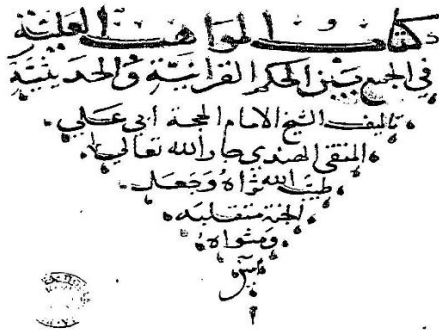 كتاب المواهب العلية
في الجمع بين الحكم القرانية والحديثية
تاليف الشيخ الامام الحجة ابي علي
المتقي الهندي جار الله تعالي
طيب الله ثراه وجعل
الجنة متقلبه
ومثواه
امين